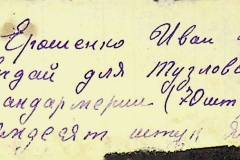 Ерошенко Иван
ндай для Тузлов
андармерии (70 шт
емдесят штук